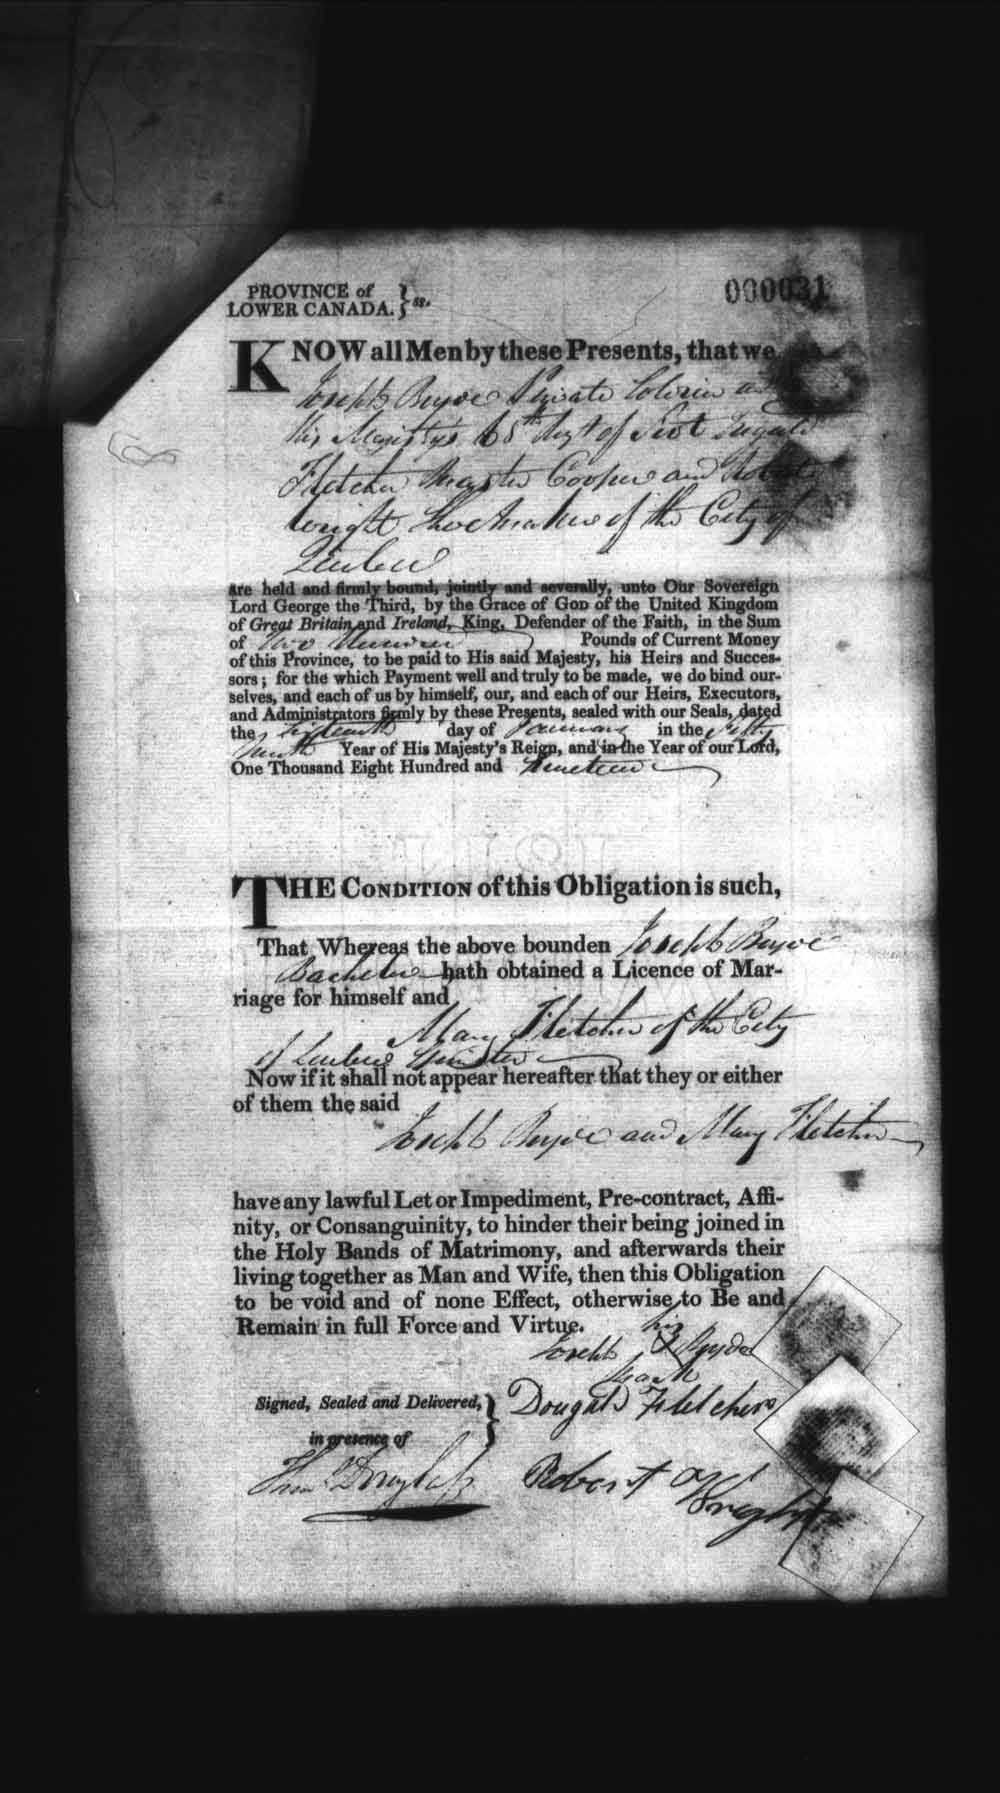 PROVINCE of
LOWER CANADA. } ss.
000031
KNOW all Men by these Presents, that we
Joseph Private Soldier in
his Majesty's 68th Regt of Foot Dugald
Fletcher Master Cooper and Robert
Wright Shoemaker of the City of
Quebec
are held and firmly bound, jointly and severally, unto Our Sovereign
Lord George the Third, by the Grace of GOD of the United Kingdom
of Great Britain and Ireland, King, Defender of the Faith, in the Sum
of Two Hundred Pounds of Current Money
of this Province, to be paid to His said Majesty, his Heirs and Succes-
sors; for the which Payment well and truly to be made, we do bind our-
selves, and each of us by himself, our, and each of our Heirs, Executors,
and Administrators firmly by these Presents, sealed with our Seals, dated
the day of January in the Fifty
Ninth Year of His Majesty's Reign, and in the Year of our Lord,
One Thousand Eight Hundred and Nineteen
THE CONDITION of this Obligation is such,
That Whereas the above bounden Joseph
Bachelor hath obtained a Licence of Mar-
riage for himself and
Mary Fletcher of the City
of Quebec Spinster
Now if it shall not appear hereafter that they or either
of them the said
Joseph and Mary Fletcher
have any lawful Let or Impediment, Pre-contract, Affi-
nity, or Consanguinity, to hinder their being joined in
the Holy Bands of Matrimony, and afterwards their
living together as Man and Wife, then this Obligation
to be void and of none Effect, otherwise to Be and
Remain in full Force and Virtue.
his
Joseph X
mark
Signed, Sealed and Delivered, }
in presence of
Dougald Fletcher
Robert Wright